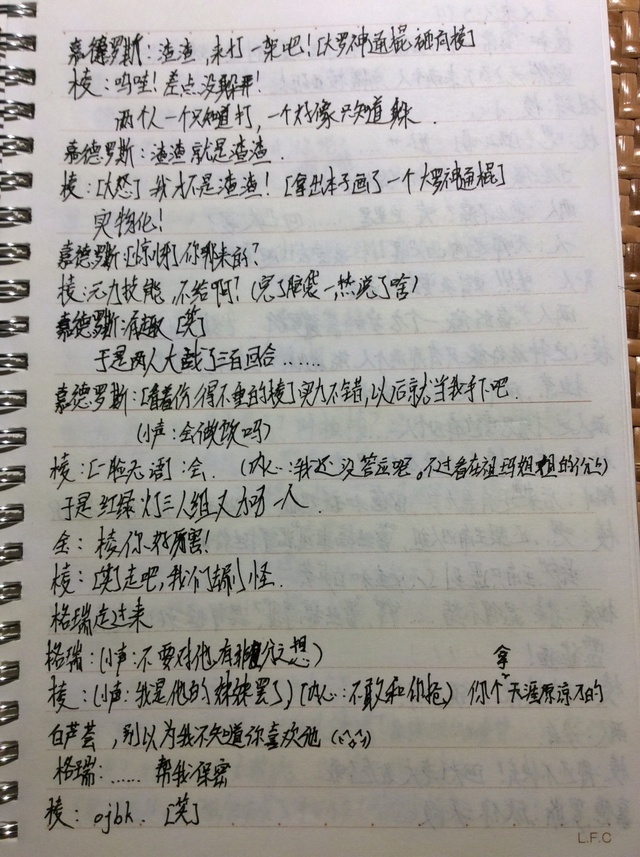 嘉德罗斯：渣渣，来打一架吧！[大罗神通棍砸向棱]
棱：呜哇！差点没躲开！
两个人一个只知道打，一个好像只知道躲.
嘉德罗斯：渣渣就是渣渣.
棱：[大怒] 我才不是渣渣！[拿出本子画了一个大罗神通棍]
实物化！
嘉德罗斯：[惊讶]你哪来的？
棱：元力技能，不给啊？(完了脑袋一热说了啥)
嘉德罗斯：有趣 [笑]
于是两人大战了三百回合……
嘉德罗斯：[看着伤得不重的棱]实力不错，以后就当我手下吧.
(小声：会做饭吗)
棱：[一脸无语]：会. (内心：我还没答应呢。不过看在祖玛姐姐的份上)
于是红绿灯三人组又加一人.
金：棱你好厉害！
棱：[笑]走吧，我们去刷小怪.
格瑞走过来
格瑞：(小声：不要对他有非分之想)
棱：(小声：我是他的妹妹罢了)(内心：不敢和你抢) 你个拿天涯原谅刀的
白芦荟，别以为我不知道你喜欢他
格瑞：…… 帮我保密
棱：ojbk. [笑]
L.F.C